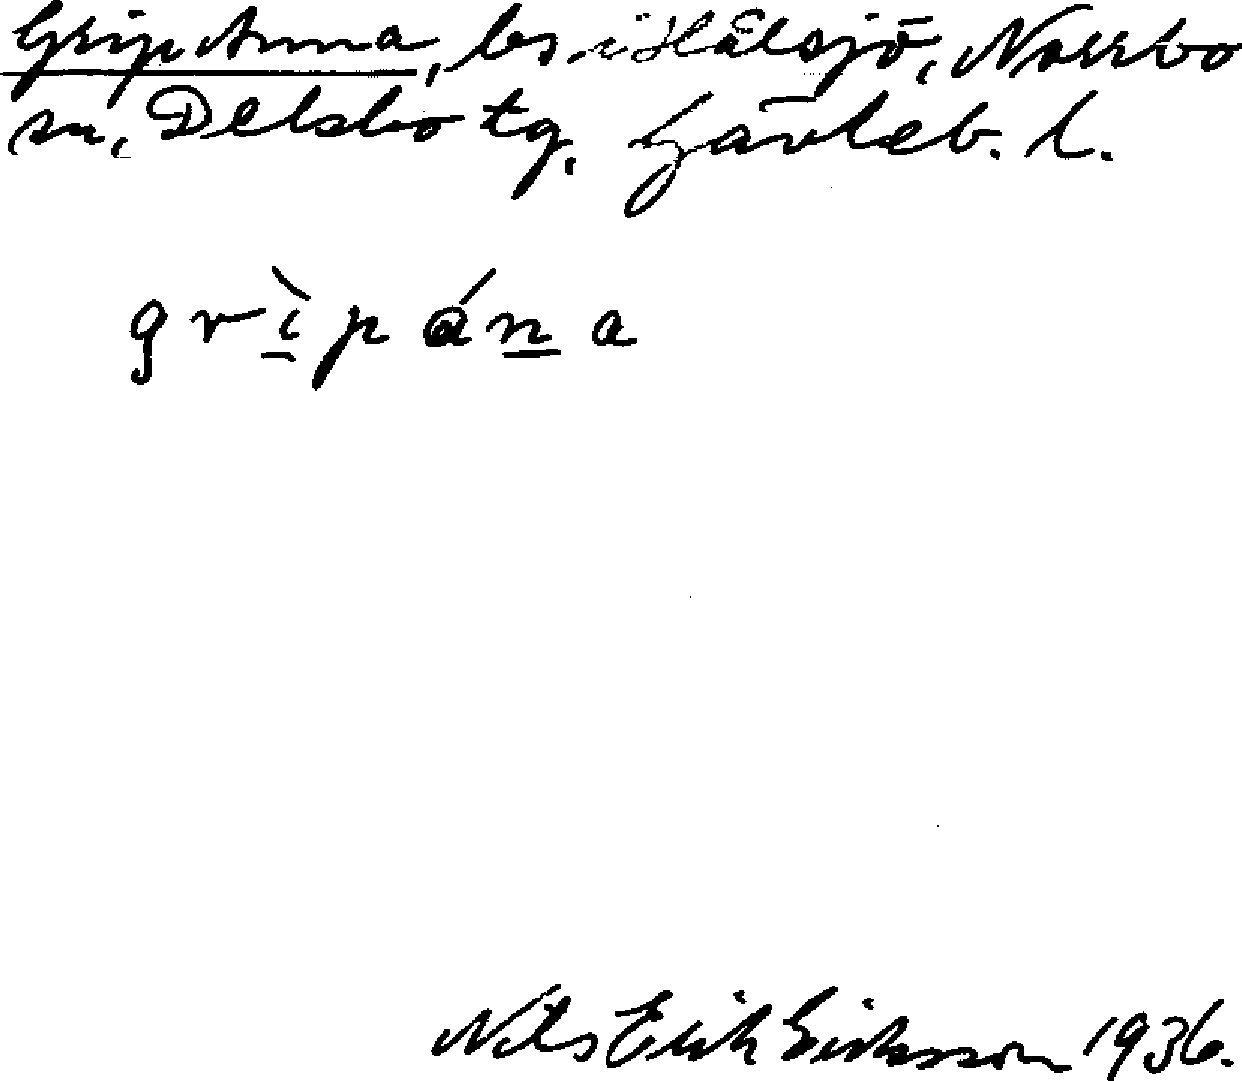 Grip Anna, by i Hålsjö, Norrbo
sn, Delsbo tg, Gävleb. l.
grìpána
Nils Erik Eriksson 1936.